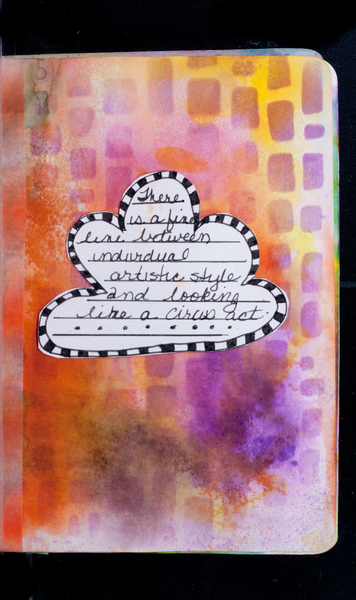 There
is a fine
line between
individual
artistic style
and looking
like a circus act.